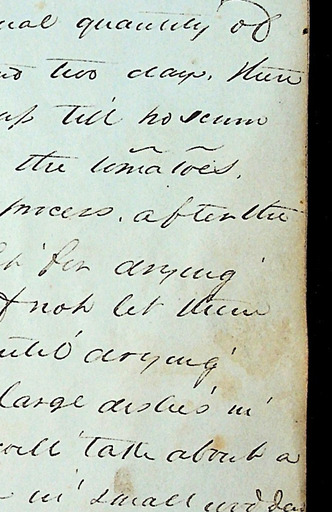 ual quantity of
two days. then
up till no scum
the tomatoes.
process. after the
for drying
not let them
until drying
large dishes in
will take about a
in small wooden